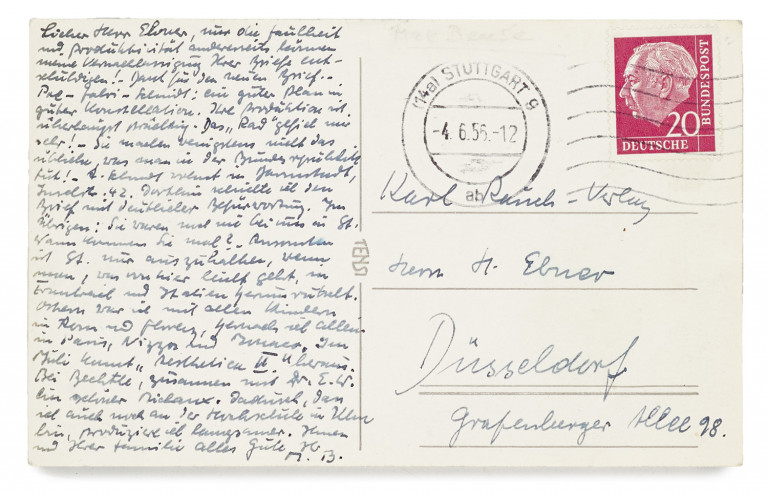 Lieber Herr Ebner, nur die Faulheit
und Produktivität andererseits können
meine Vernachlässigung Ihrer Briefe ent-
schuldigen! - Dank für den neuen Brief. -
ein guter Plan in
guter Konstellation. Ihre Produktion ist
überhaupt prächtig. Das "Rad" gefiel mir
sehr! - Sie machen wenigstens nicht das
übliche, was man in der Bundesrepublik
tut! - A. Schmidt wohnt in Darmstadt,
Inselstr. 42. Dorthin schickte ich den
Brief mit deutlicher Befürwortung. Im
übrigen: Sie waren mal nie bei uns in St.
Wann kommen Sie mal? - Ansonsten
ist St. nur auszuhalten, wenn
man, was von hier leicht geht, in
Frankreich und Italien
Ostern war ich mit allen Kindern
in Rom und Florenz, hernach ich allein
in Paris, Nizza und Im
Juli kommt "Aesthetica II" heraus.
Bei Bechtle, zusammen mit Dr. E. W.
Dadurch, dass
ich auch noch an der Hochschule in Ulm
bin, produziere ich langsamer. Ihnen
und Ihrer Familie alles Gute Ihr
M. B.
Max Bense
(14a) STUTTGART 9
-4.6.56.-12
ab
20
DEUTSCHE
BUNDESPOST
Karl Rauch-Verlag
Herrn H. Ebner
Düsseldorf
Grafenberger Allee 98.